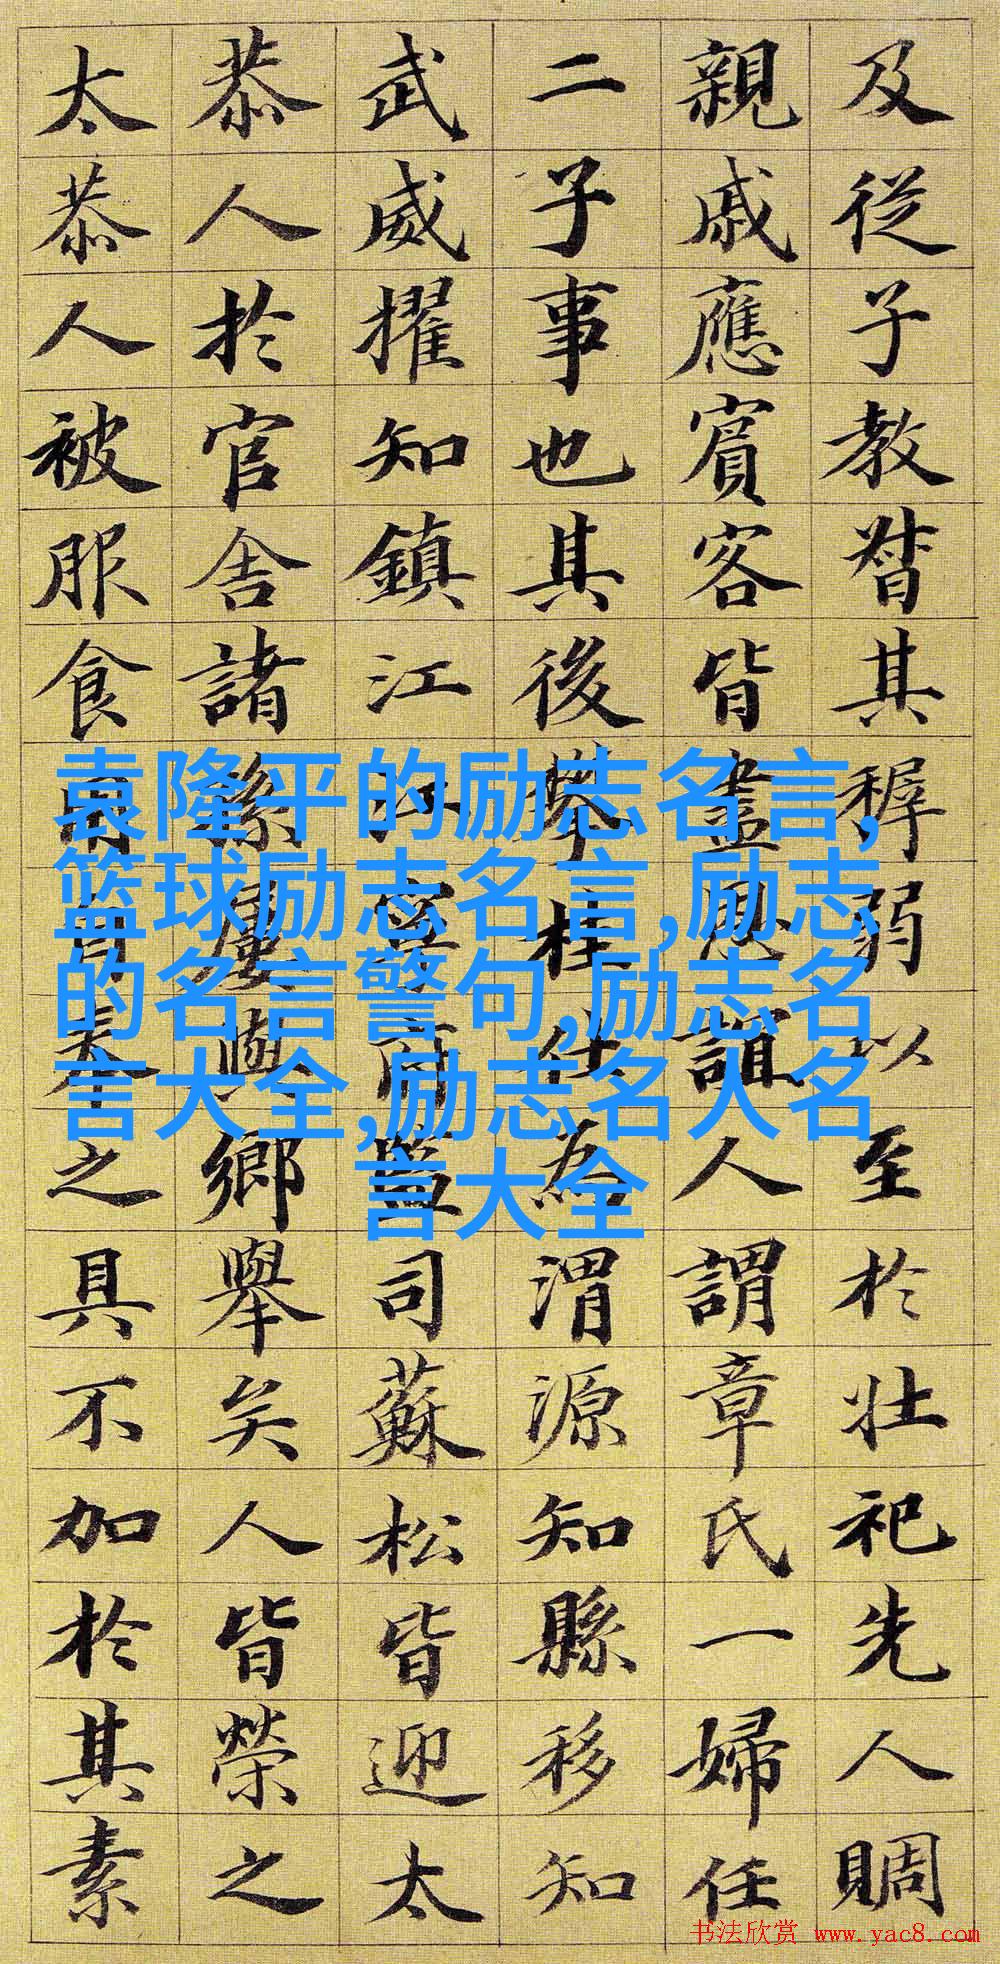 及從子教督其穉弱以至於壯祀先人賙
親戚應賓客皆盡恩誼人謂章氏一婦任
二子事也其後桂仕為渭源知縣移知
武威擢知鎮江江寧府監司蘇松皆迎太
恭人於官舍諸孫屢與鄉舉矣人皆榮之
太恭人被服食用自奉之具不加於其素
袁隆平的励志名言,
篮球励志名言,励志
的名言警句,励志名
言大全,励志名人名
言大全
书法欣赏 www.yac8.com